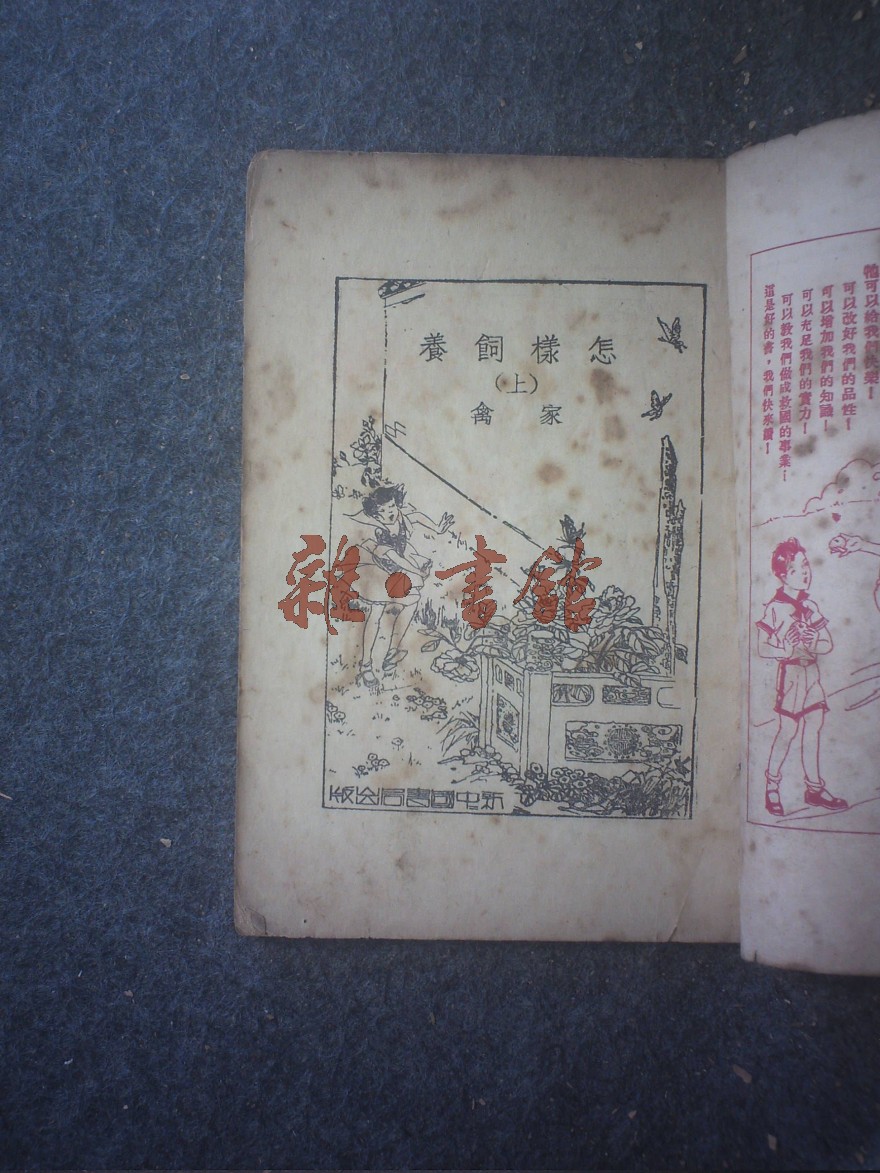 怎樣飼養
(上)
家禽
新中國書局出版
雜·書館
可以給我
可以改好我們的品性！
可以增加我們的知識！
可以充足我們的實力！
可以教我們做成救國的事業！
這是好的書，我們快來讀！